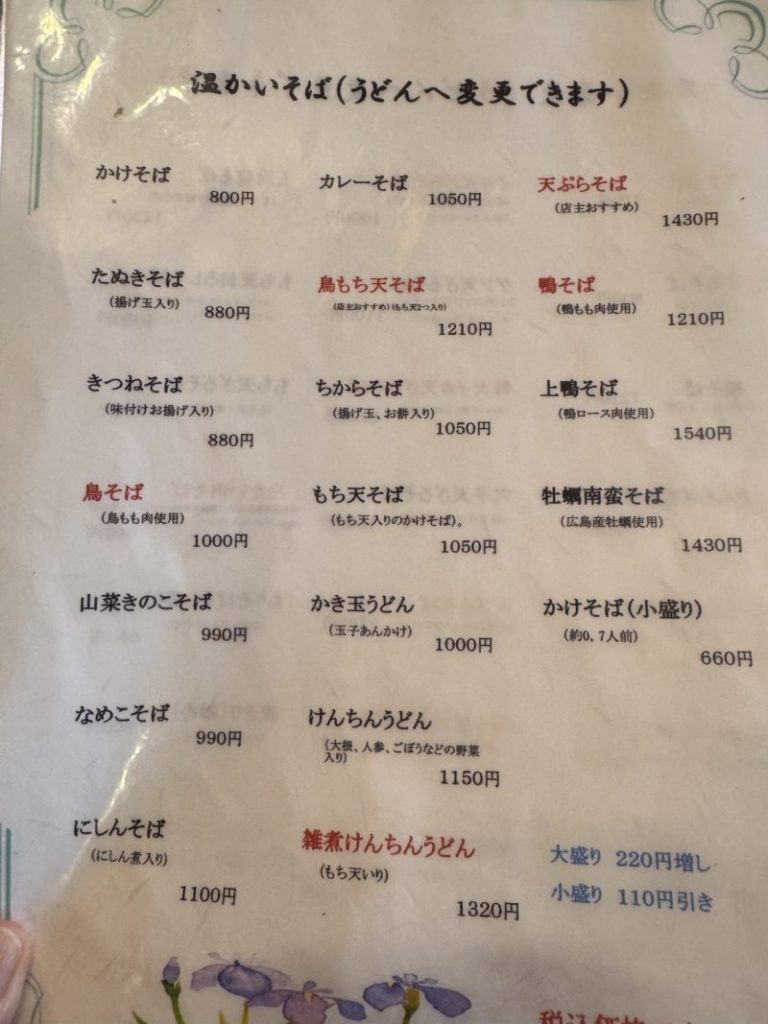 温かいそば(うどんへ変更できます)
かけそば
800円
たぬきそば
(揚げ玉入り)
880円
きつねそば
(味付けお揚げ入り)
880円
鳥そば
(鳥もも肉使用)
1000円
山菜きのこそば
990円
なめこそば
990円
にしんそば
(にしん煮入り)
1100円
カレーそば
1050円
鳥もち天そば
(店主おすすめ)(もち天2つ入り)
1210円
ちからそば
(揚げ玉、お餅入り)
1050円
もち天そば
(もち天入りのかけそば)。
1050円
かき玉うどん
(玉子あんかけ)
1000円
けんちんうどん
(大根、人参、ごぼうなどの野菜
入り)
1150円
雑煮けんちんうどん
(もち天いり)
1320円
天ぷらそば
(店主おすすめ)
1430円
鴨そば
(鴨もも肉使用)
1210円
上鴨そば
(鴨ロース肉使用)
1540円
牡蠣南蛮そば
(広島産牡蠣使用)
1430円
かけそば(小盛り)
(約0,7人前)
660円
大盛り 220円増し
小盛り 110円引き
税込価格